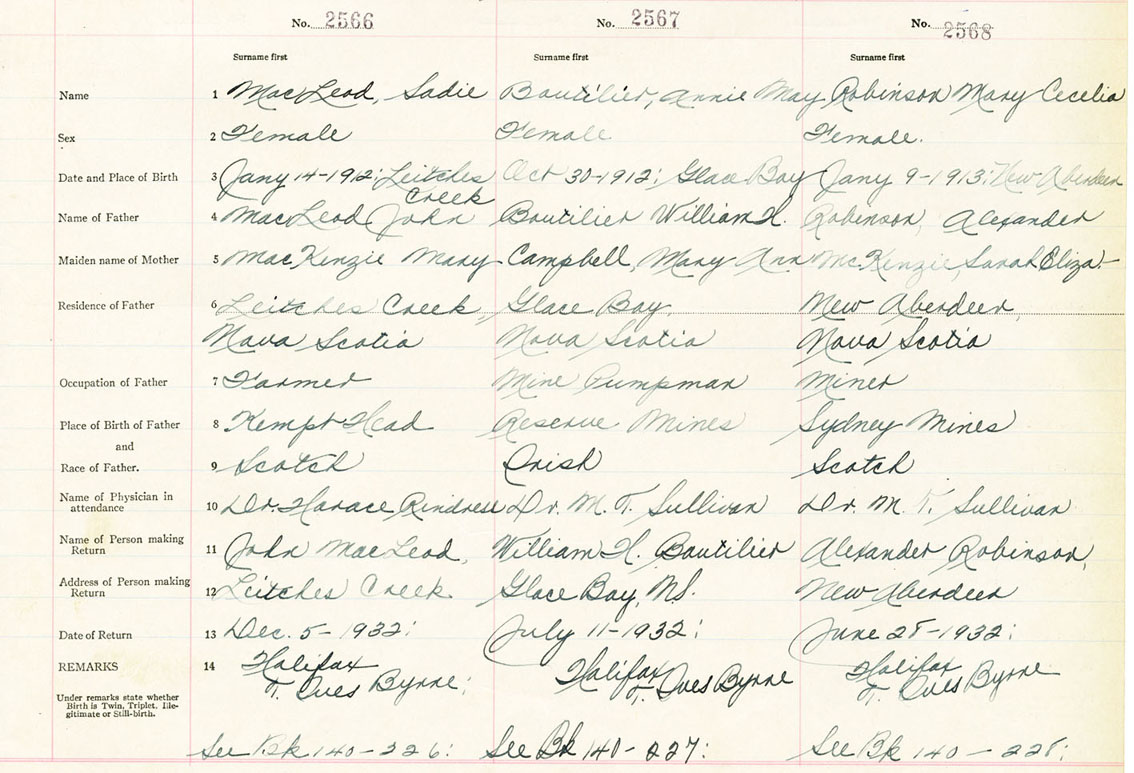 No. 2566 No. 2567 No. 2568
Surname first Surname first Surname first
Name 1 MacLeod, Sadie Boutilier, Annie May Robinson Mary Cecelia
Sex 2 Female Female Female.
Date and Place of Birth 3 Jany 14-1912; Leitches Creek Oct 30-1912; Glace Bay Jany 9-1913; New Aberdeen
Name of Father 4 MacLeod John Boutilier William H. Robinson, Alexander
Maiden name of Mother 5 MacKenzie Mary Campbell, Mary Ann McKenzie, Sarah Eliza.
Residence of Father 6 Leitches Creek, Glace Bay, New Aberdeen,
Nova Scotia Nova Scotia Nova Scotia
Occupation of Father 7 Farmer Mine Pumpman Miner
Place of Birth of Father 8 Kempt Head Reserve Mines Sydney Mines
and
Race of Father. 9 Scotch Irish Scotch
Name of Physician in attendance 10 Dr. Horace Rindress Dr. M. T. Sullivan Dr. M. T. Sullivan
Name of Person making Return 11 John MacLeod, William H. Boutilier Alexander Robinson,
Address of Person making Return 12 Leitches Creek. Glace Bay, N.S. New Aberdeen
Date of Return 13 Dec. 5-1932; July 11-1932; June 28-1932;
REMARKS 14 Halifax Halifax Halifax
T. Ives Byrne; T. Ives Byrne T. Ives Byrne
Under remarks state whether
Birth is Twin, Triplet, Ille-
gitimate or Still-birth.
See Bk 140-226: See Bk 140-227: See Bk 140-228: